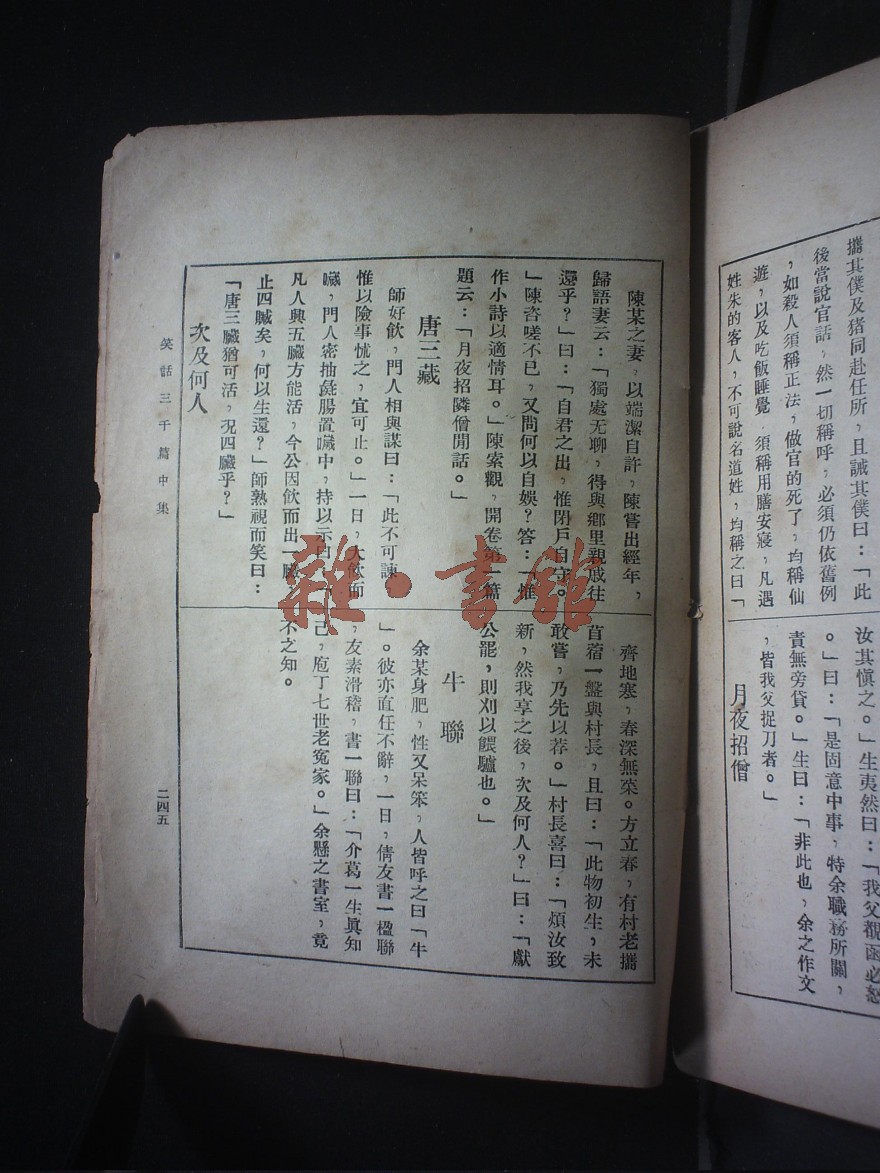 攜其僕及猪同赴任所，且誡其僕曰：「此
後當說官話，然一切稱呼，必須仍依舊例
，如殺人須稱正法，做官的死了，均稱仙
遊，以及吃飯睡覺，須稱用膳安寢，凡遇
姓朱的客人，不可說名道姓，均稱之曰「
汝其愼之。」生夷然曰：「我父覩函必怒
。」曰：「是固意中事，特余職務所關，
責無旁貸。」生曰：「非此也，余之作文
，皆我父捉刀者。」
月夜招僧
陳某之妻，以端潔自許，陳嘗出經年，
歸語妻云：「獨處无聊，得與鄉里親戚往
還乎？」曰：「自君之出，惟閉戶自守。
」陳咨嗟不已，又問何以自娛？答：「惟
作小詩以適情耳。」陳索觀，開卷第一篇
題云：「月夜招隣僧閒話。」
唐三藏
師好飲，門人相與謀曰：「此不可諫，
惟以險事怵之，宜可止。」一日，大飲而
噦，門人密抽彘腸置噦中，持以示曰：「
凡人具五臟方能活，今公因飲而出一臟，
止四臟矣，何以生還？」師熟視而笑曰：
「唐三臟猶可活，况四臟乎？」
次及何人
齊地寒，春深無菜。方立春，有村老攜
苜蓿一盤與村長，且曰：「此物初生，未
敢嘗，乃先以荐。」村長喜曰：「煩汝致
新，然我享之後，次及何人？」曰：「獻
公罷，則刈以餵驢也。」
牛聯
余某身肥，性又呆笨，人皆呼之曰「牛
」。彼亦直任不辭，一日，倩友書一楹聯
，友素滑稽，書一聯曰：「介葛一生眞知
己，庖丁七世老冤家。」余懸之書室，竟
不之知。
笑話三千篇中集
二四五
雜·書館